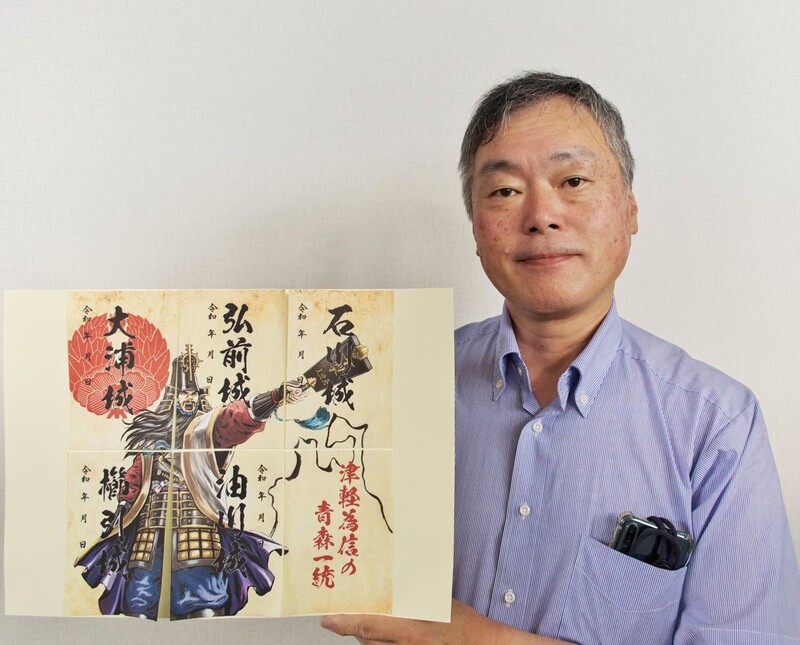 石川城
令和 年 月
弘前城
令和 年 月 日
大浦城
令和 年 月 日
津軽為信の
青森一統
令和 年 月 日
油川城
櫛引城
令和 年 月 日